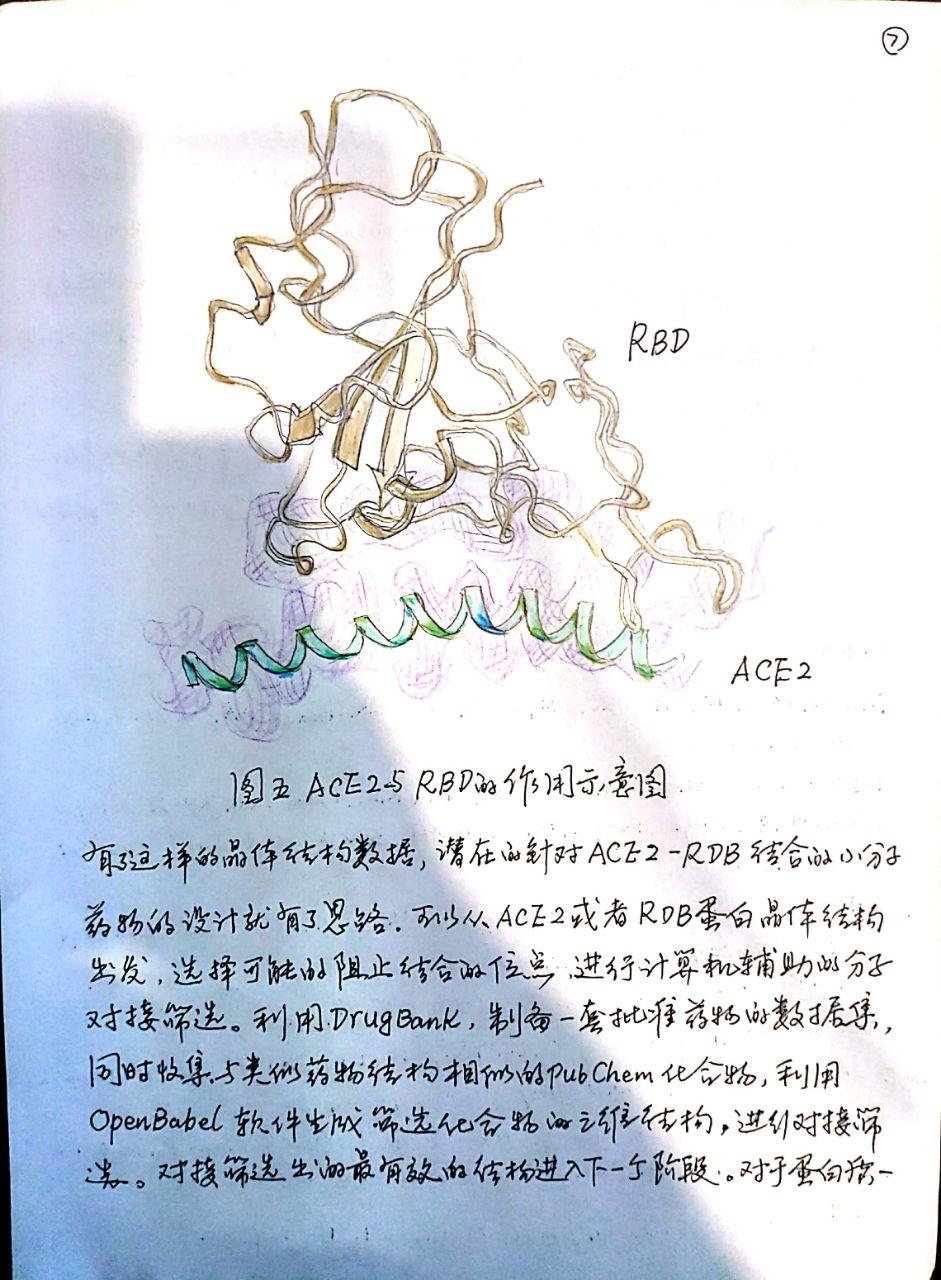 ⑦
RBD
ACE2
图五 ACE2与RBD的作用示意图
有了这样的晶体结构数据，潜在的针对ACE2-RDB结合的小分子
药物的设计就有了思路。可以从ACE2或者RDB蛋白晶体结构
出发，选择可能的阻止结合的位点，进行计算机辅助的分子
对接筛选。利用DrugBank，制备一套批准药物的数据集，
同时收集与类似药物结构相似的PubChem化合物，利用
OpenBabel软件生成筛选化合物的三维结构，进行对接筛
选。对接筛选出的最有效的结构进入下一个阶段。对于蛋白